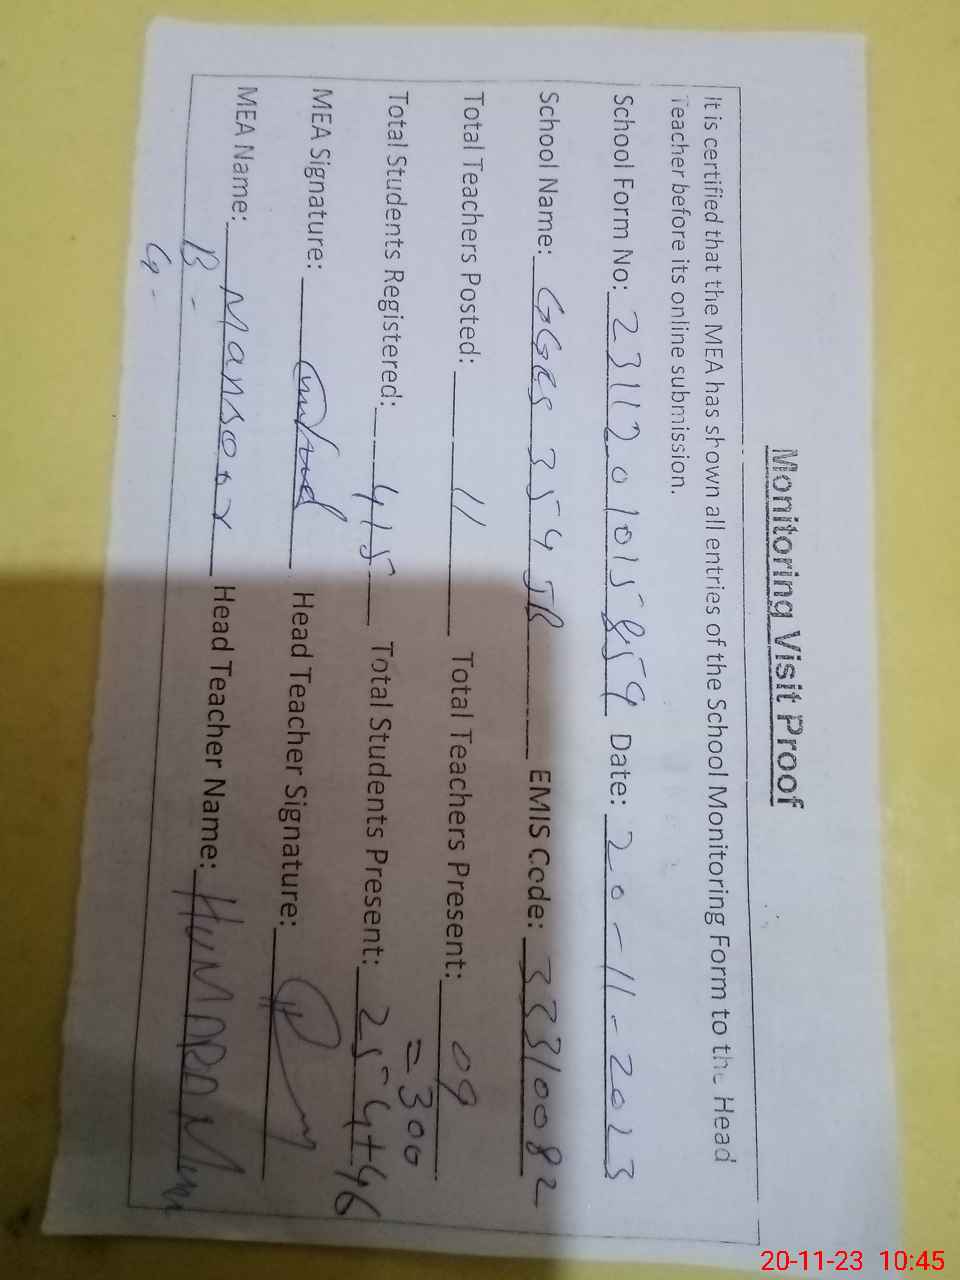 Monitoring Visit Proof
It is certified that the MEA has shown all entries of the School Monitoring Form to the Head
Teacher before its online submission.
School Form No: 2311201015859 Date: 20-11-2023
School Name: GGES 354 JB EMIS Code: 33310082
Total Teachers Posted: 11 Total Teachers Present: 09
= 300
Total Students Registered: 415 Total Students Present: 254+46
MEA Signature: Head Teacher Signature:
MEA Name: Mansoor Head Teacher Name:
B -
G -
20-11-23 10:45